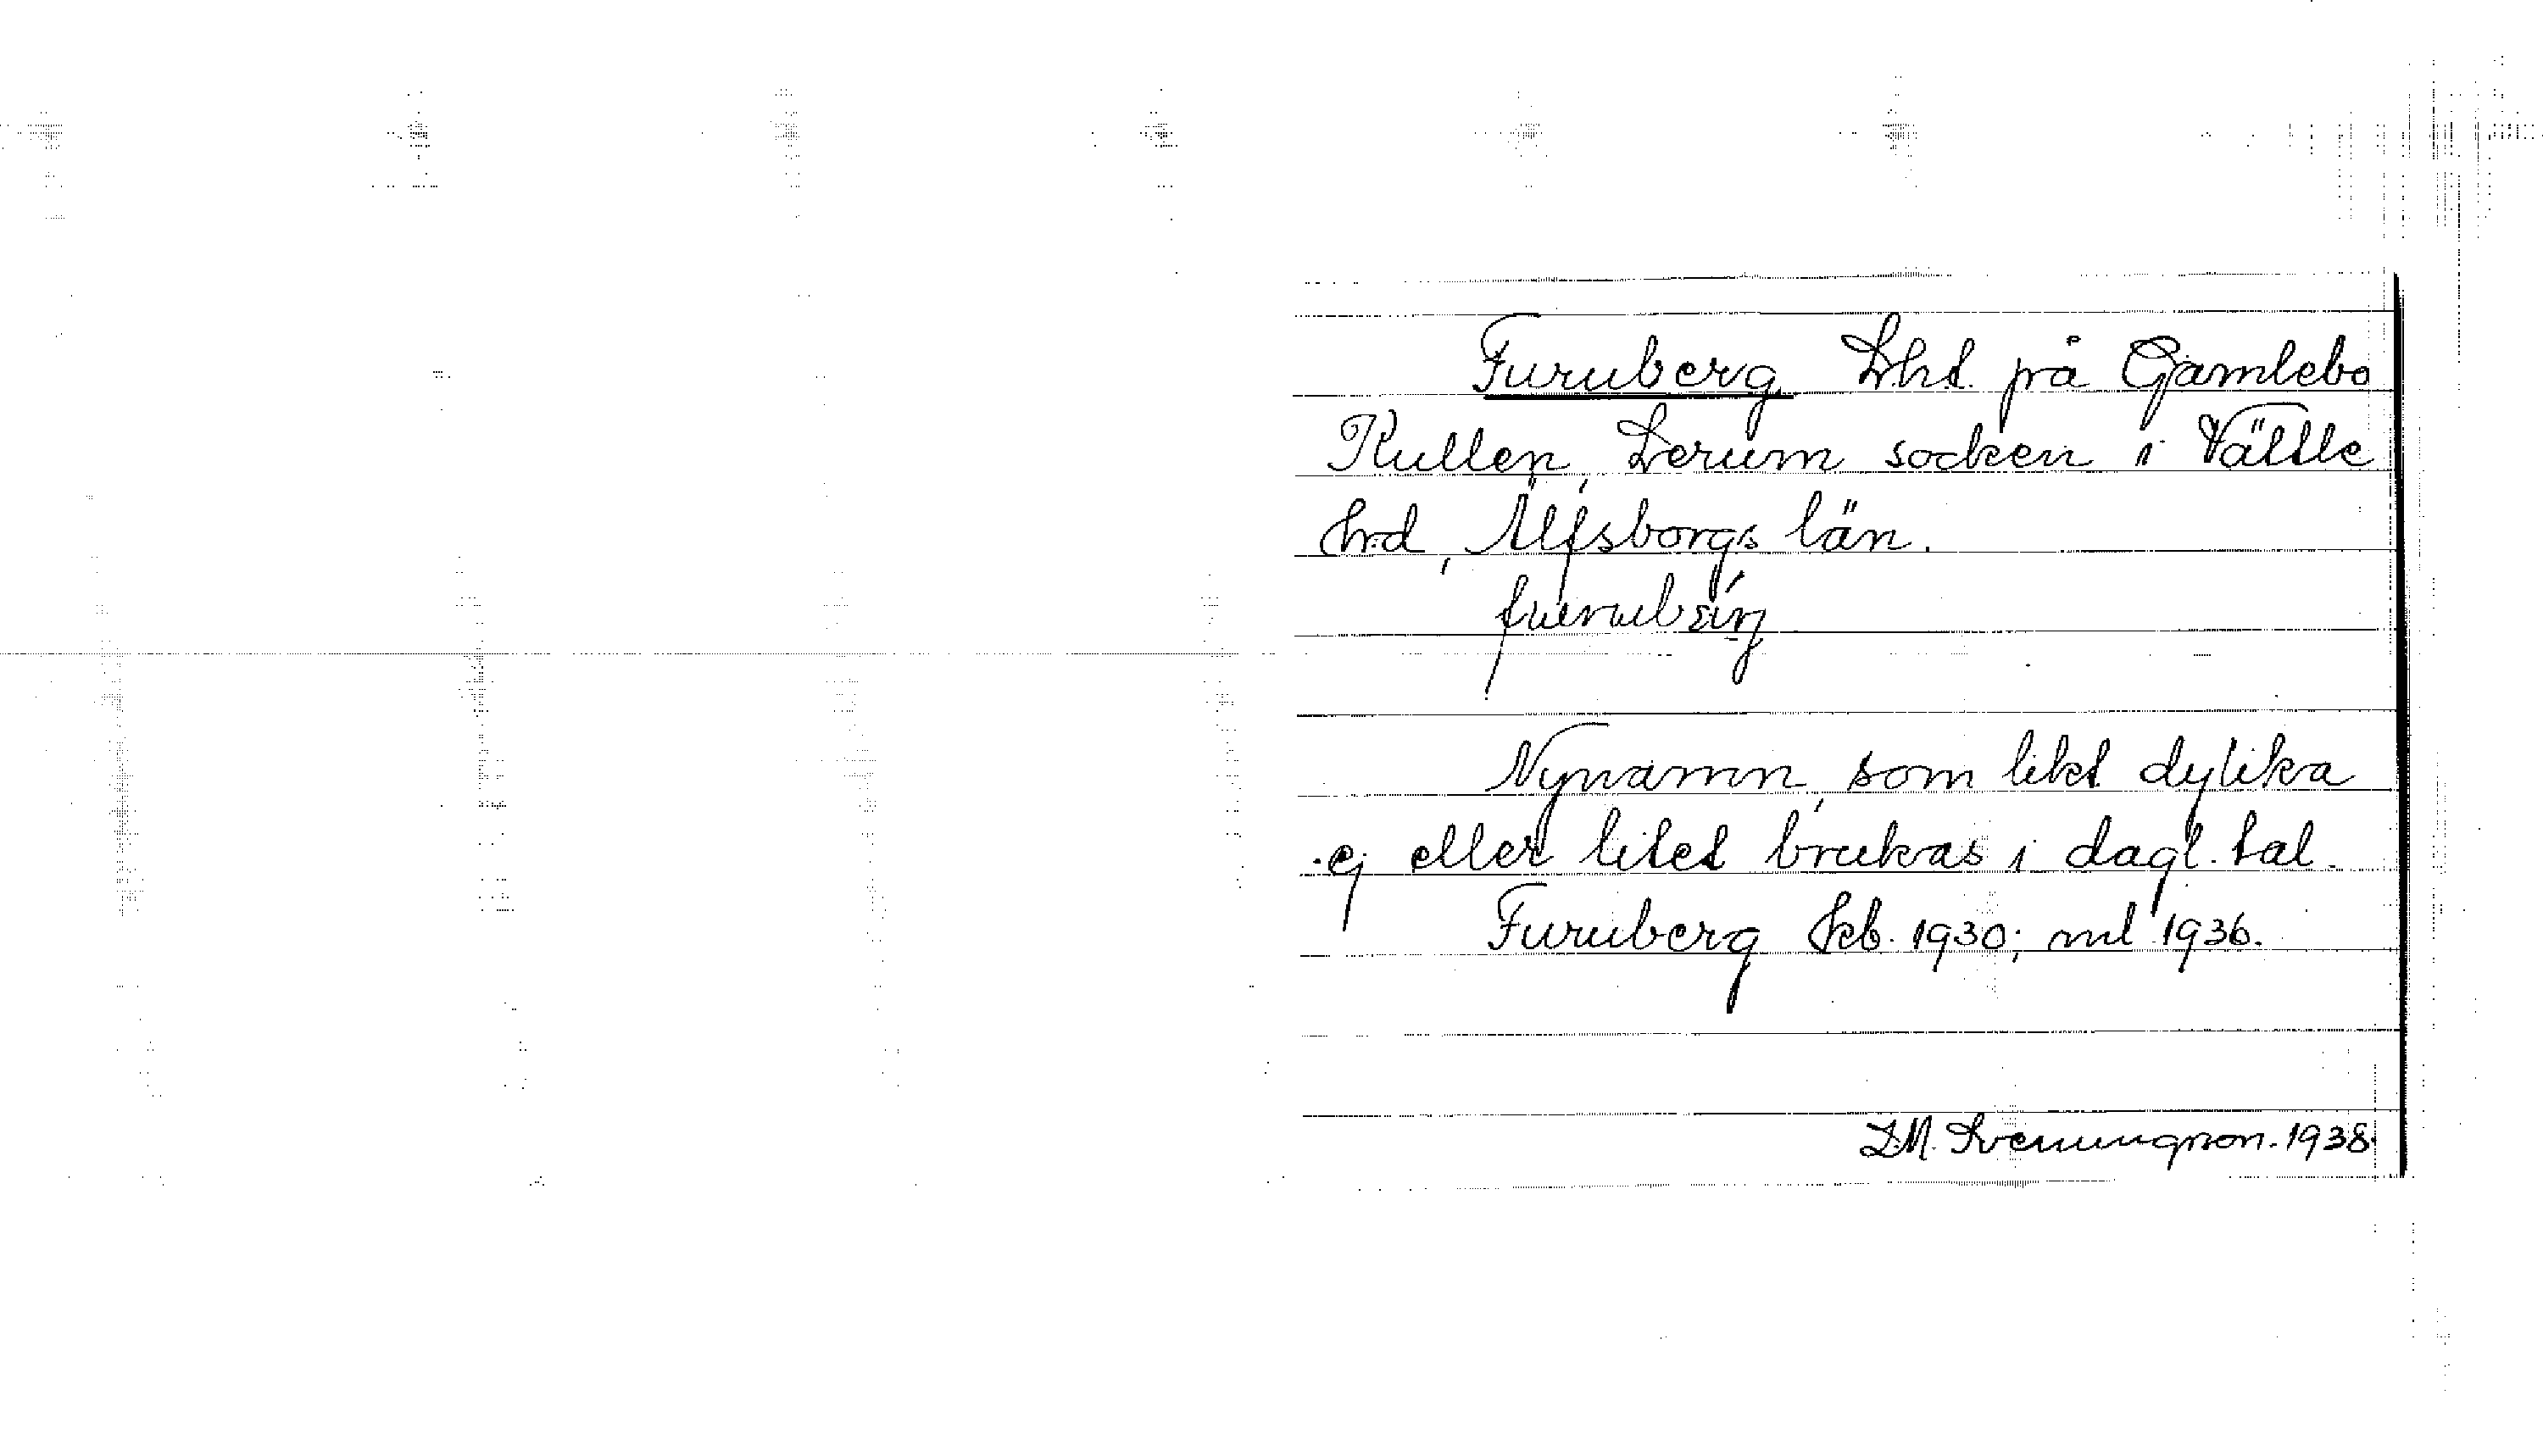 Furuberg Lht på Gamlebo
Kullen, Lerum socken i Vättle
hd, Älfsborgs län.
Nynamn, som likt dylika
ej eller litet brukas i dagl. tal.
Furuberg kb. 1930; ml 1936.
L.M. Svenungsson. 1938